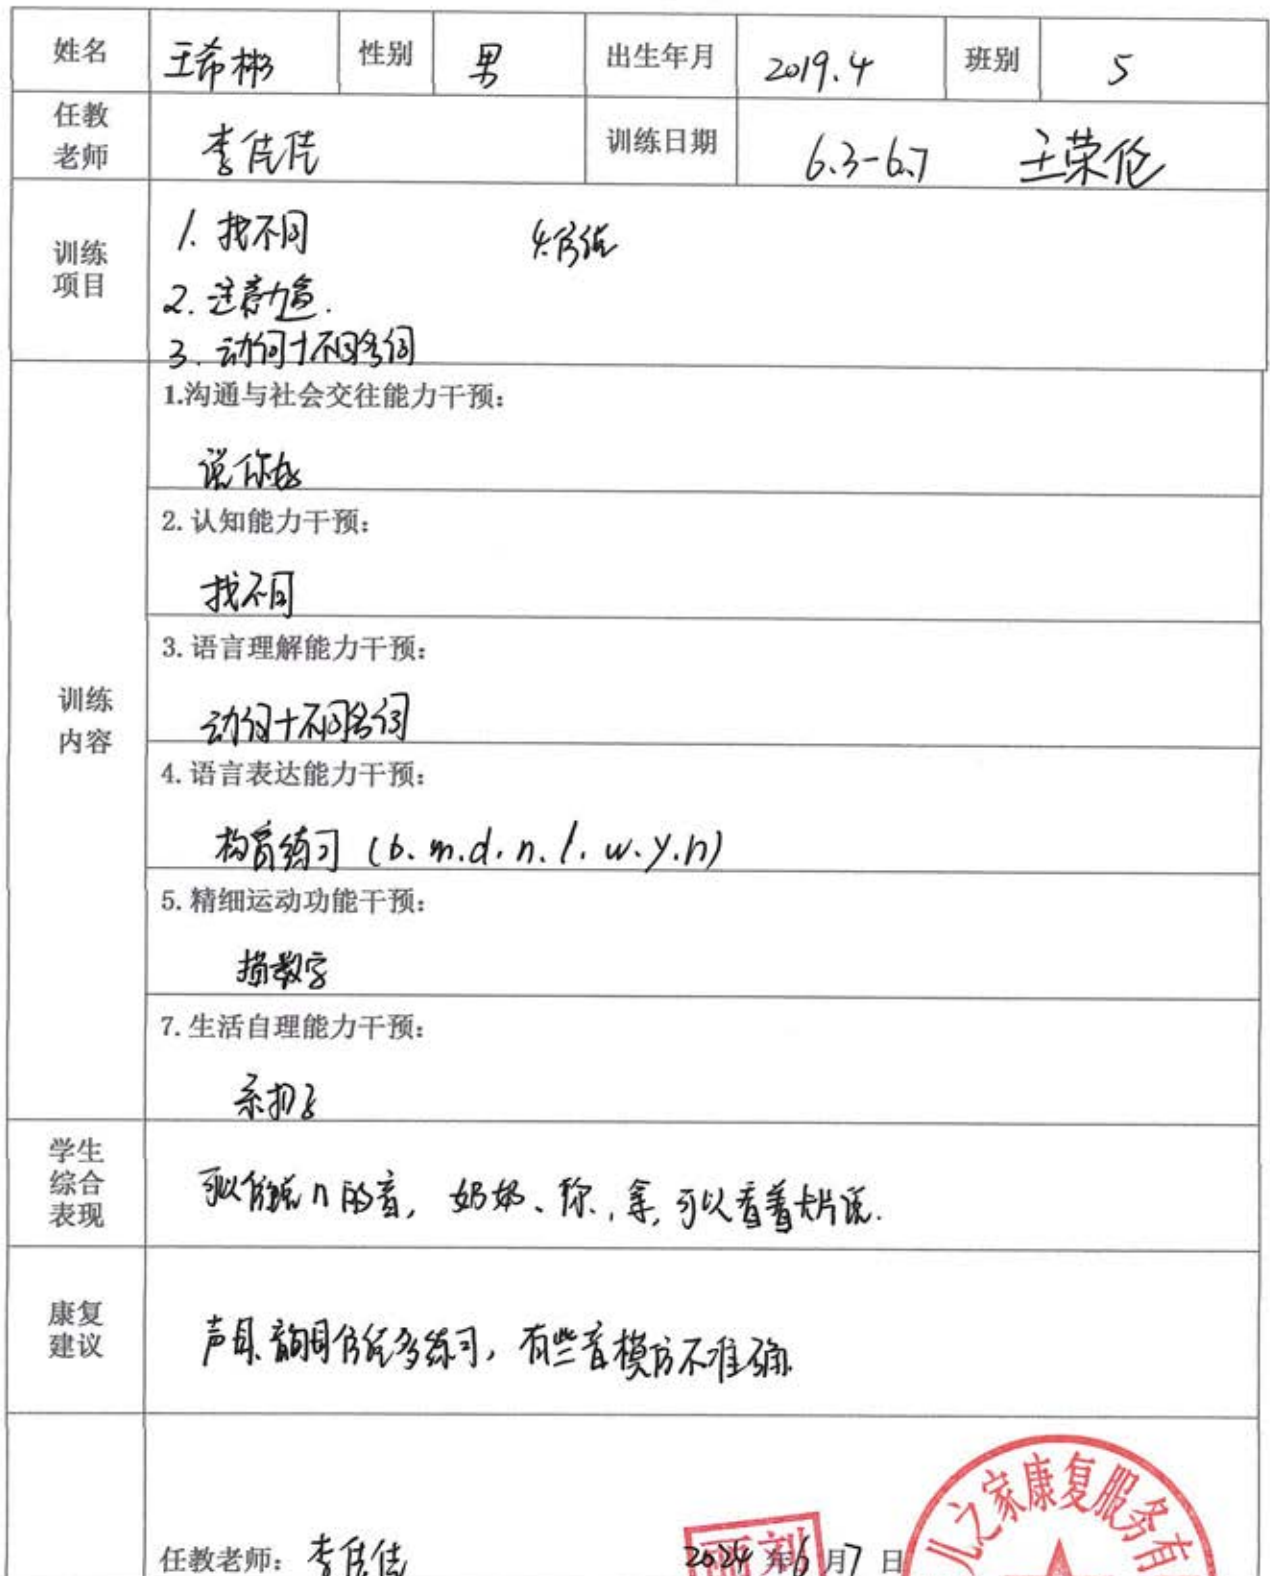 姓名 王希彬 性别 男 出生年月 2019.4 班别 5
任教老师 李佳佳 训练日期 6.3-6.7 王荣伦
训练项目
1. 找不同 4.仿结
2. 注意力盒.
3. 动词+不同名词
训练内容
1.沟通与社会交往能力干预：
说你好
2. 认知能力干预：
找不同
3. 语言理解能力干预：
动词+不同名词
4. 语言表达能力干预：
构音练习 (b. m. d. n. l. w. y. h)
5. 精细运动功能干预：
描数字
7. 生活自理能力干预：
系扣子
学生综合表现
可以仿说n的音, 奶奶、你、拿, 可以看着卡片说.
康复建议
声母.韵母仿说多练习, 有些音模仿不准确.
任教老师： 李佳佳 2024年6月7日
儿之家康复服务有